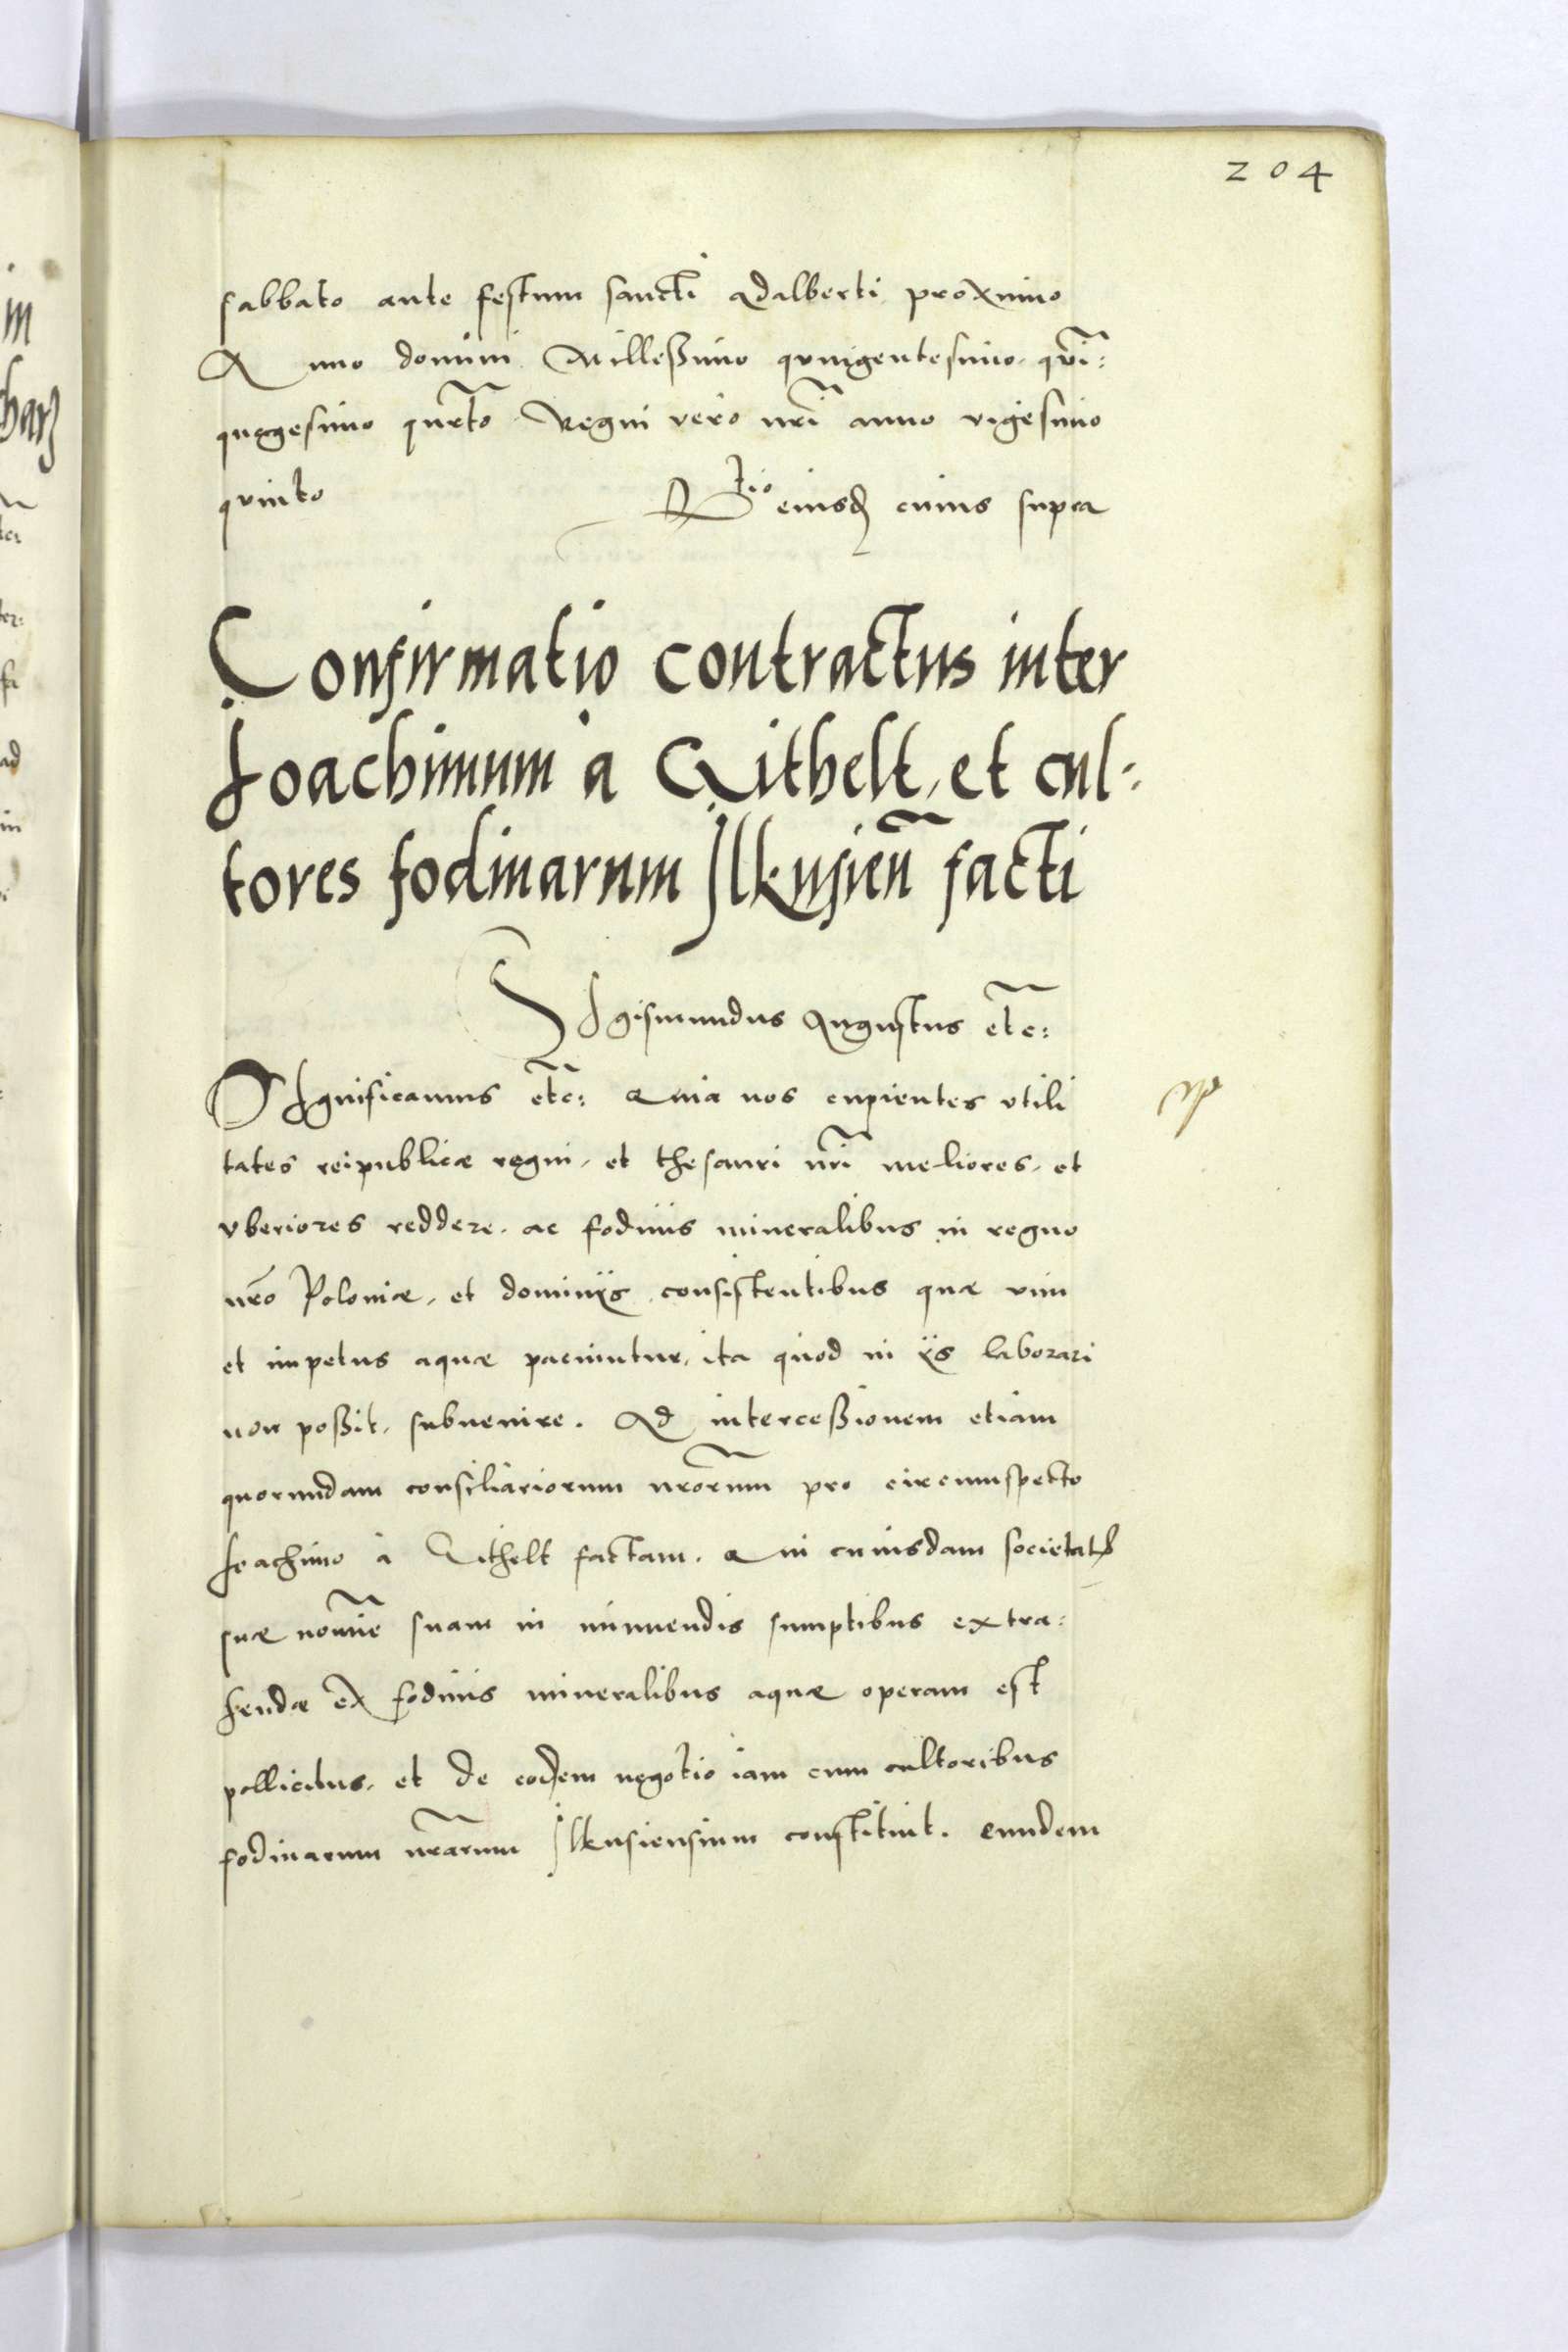 204
sabbato ante festum sancti Adalberti proximo
Anno domini Millesſimo quingentesimo qui:
quagesimo qurto Regni vero nri anno vigesimo
quinto Rtio eiusd cuius supra
Confirmatio contractus inter
Ioachimum a Githelt, et cul-
tores fodinarum Ilkusien facti
SIgismundus Augustus etc:
SIgnificamus etc: Quia nos cupientes vtili
tates reipublicæ regni, et thesauri nri meliores, et
vberiores reddere, ac fodinis mineralibus in regno
nro Poloniæ, et dominijs consistentibus quæ vim
et impetus aquæ paciuntur, ita quod in ijs laborari
non poßit, subuenire. Ad interceßionem etiam
quorundam consiliariorum nrorum pro circumspecto
Ioachimo à Githelt factam. Qui cuiusdam societatis
suæ nomie suam in minuendis sumptibus extra:
hendæ ex fodinis mineralibus aquæ operam est
pollicitus, et de eodem negotio iam cum cultoribus
fodinarum nrarum Ilkusiensium constituit. eundem